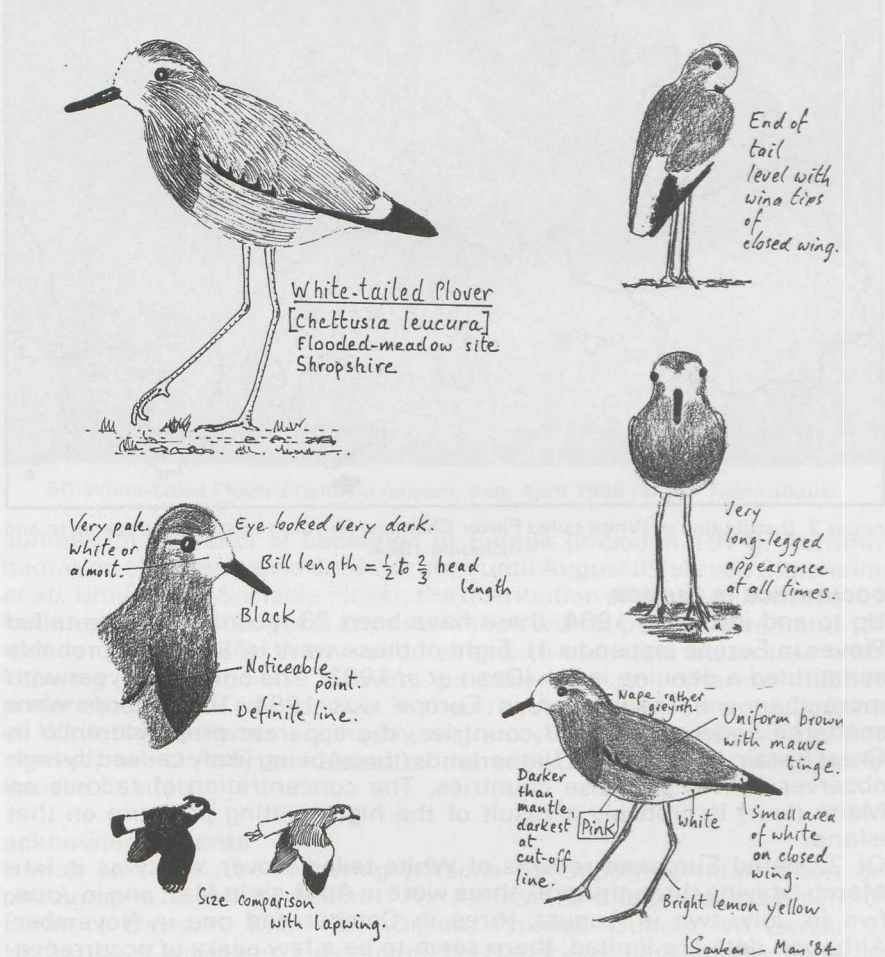 White-tailed Plover
[Chettusia leucura]
Flooded-meadow site
Shropshire
End of
tail
level with
wing tips
of
closed wing.
Very
long-legged
appearance
at all times.
Very pale.
White or
almost.
Eye looked very dark.
Bill length = ½ to ⅔ head
length
Black
Noticeable
point.
Definite line.
Size comparison
with lapwing.
Nape rather
greyish.
Uniform brown
with mauve
tinge.
Darker
than
mantle
darkest
at
cut-off
line
Pink
White
Small area
of white
on closed
wing.
Bright lemon yellow.
'84